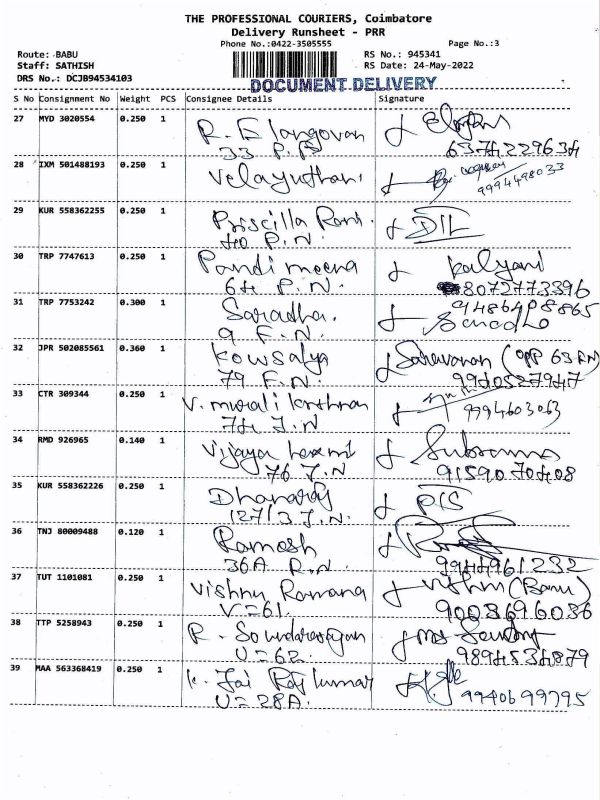 THE PROFESSIONAL COURIERS, Coimbatore
Delivery Runsheet - PRR
Phone No.:0422-3505555 Page No.:3
Route: BABU RS No.: 945341
Staff: SATHISH RS Date: 24-May-2022
DRS No.: DCJB94534103
DOCUMENT DELIVERY
S No Consignment No Weight PCS Consignee Details Signature
27 MYD 3020554 0.250 1 R. Elangovan
33 P.N 6374229634
28 IXM 501488193 0.250 1 Velayutham. 9994498033
29 KUR 558362255 0.250 1 Priscilla Rani.
40 P.N.
30 TRP 7747613 0.250 1 Pandi meena Kalyani
64 P.N. 8072773396
31 TRP 7753242 0.300 1 Saradha. 9486408865
9 F.N. Saradha
32 JPR 502085561 0.360 1 Kowsalya Saravanan (OPP 63 FN)
79 F.N. 9940527947
33 CTR 309344 0.250 1 V. murali krishnan
74 J.N 9994603063
34 RMD 926965 0.140 1 Vijaya laxmi
76 J.N 9159070408
35 KUR 558362226 0.250 1 Dhanaraj
127/3 J.N.
36 TNJ 80009488 0.120 1 Ramesh
36A R.N. 9944961232
37 TUT 1101081 0.250 1 Vishnu Ramana Vishnu (Banu)
V=61. 9003696086
38 TTP 5258943 0.250 1 R. Soundararajan
U=62. 9894534879
39 MAA 563368419 0.250 1 K. Jai Raj kumar
U=28A. 9940699795